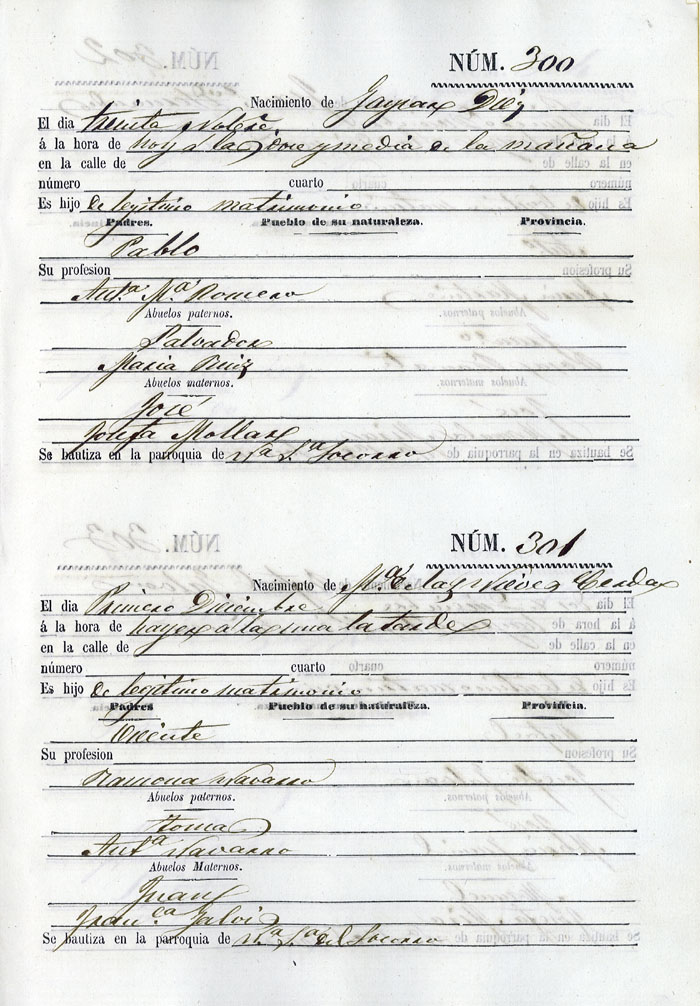 NÚM. 300
Nacimiento de Gaspar Diez
El dia treinta Nobre.
á la hora de hoy a las doce y media de la mañana
en la calle de
número cuarto
Es hijo de legitimo matrimonio
Padres. Pueblo de su naturaleza. Provincia.
Pablo
Su profesion
Anta. Ma. Romero
Abuelos paternos.
Salvador
Maria Ruiz
Abuelos maternos.
José
Josefa Mollar
Se bautiza en la parroquia de Na. Sa. Socorro
NÚM. 301
Nacimiento de Ma. de las Nieves Cerdá
El dia Primero Diciembre
á la hora de hayer a la una la tarde
en la calle de
número cuarto
Es hijo de legitimo matrimonio
Padres Pueblo de su naturaleza. Provincia.
Vicente
Su profesion
Ramona Navarro
Abuelos paternos.
Tomas
Anta. Navarro
Abuelos Maternos.
Juan
Franca. Galvi
Se bautiza en la parroquia de Na. Sa. del Socorro